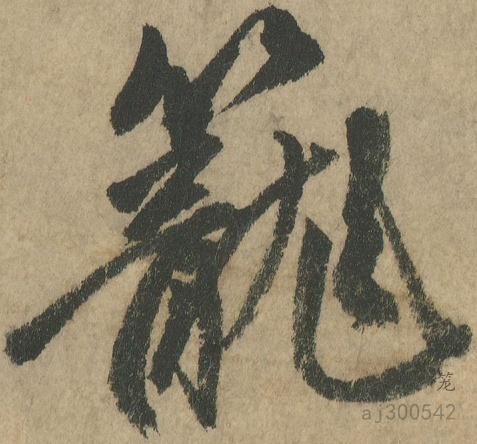 籠
笼
aj300542